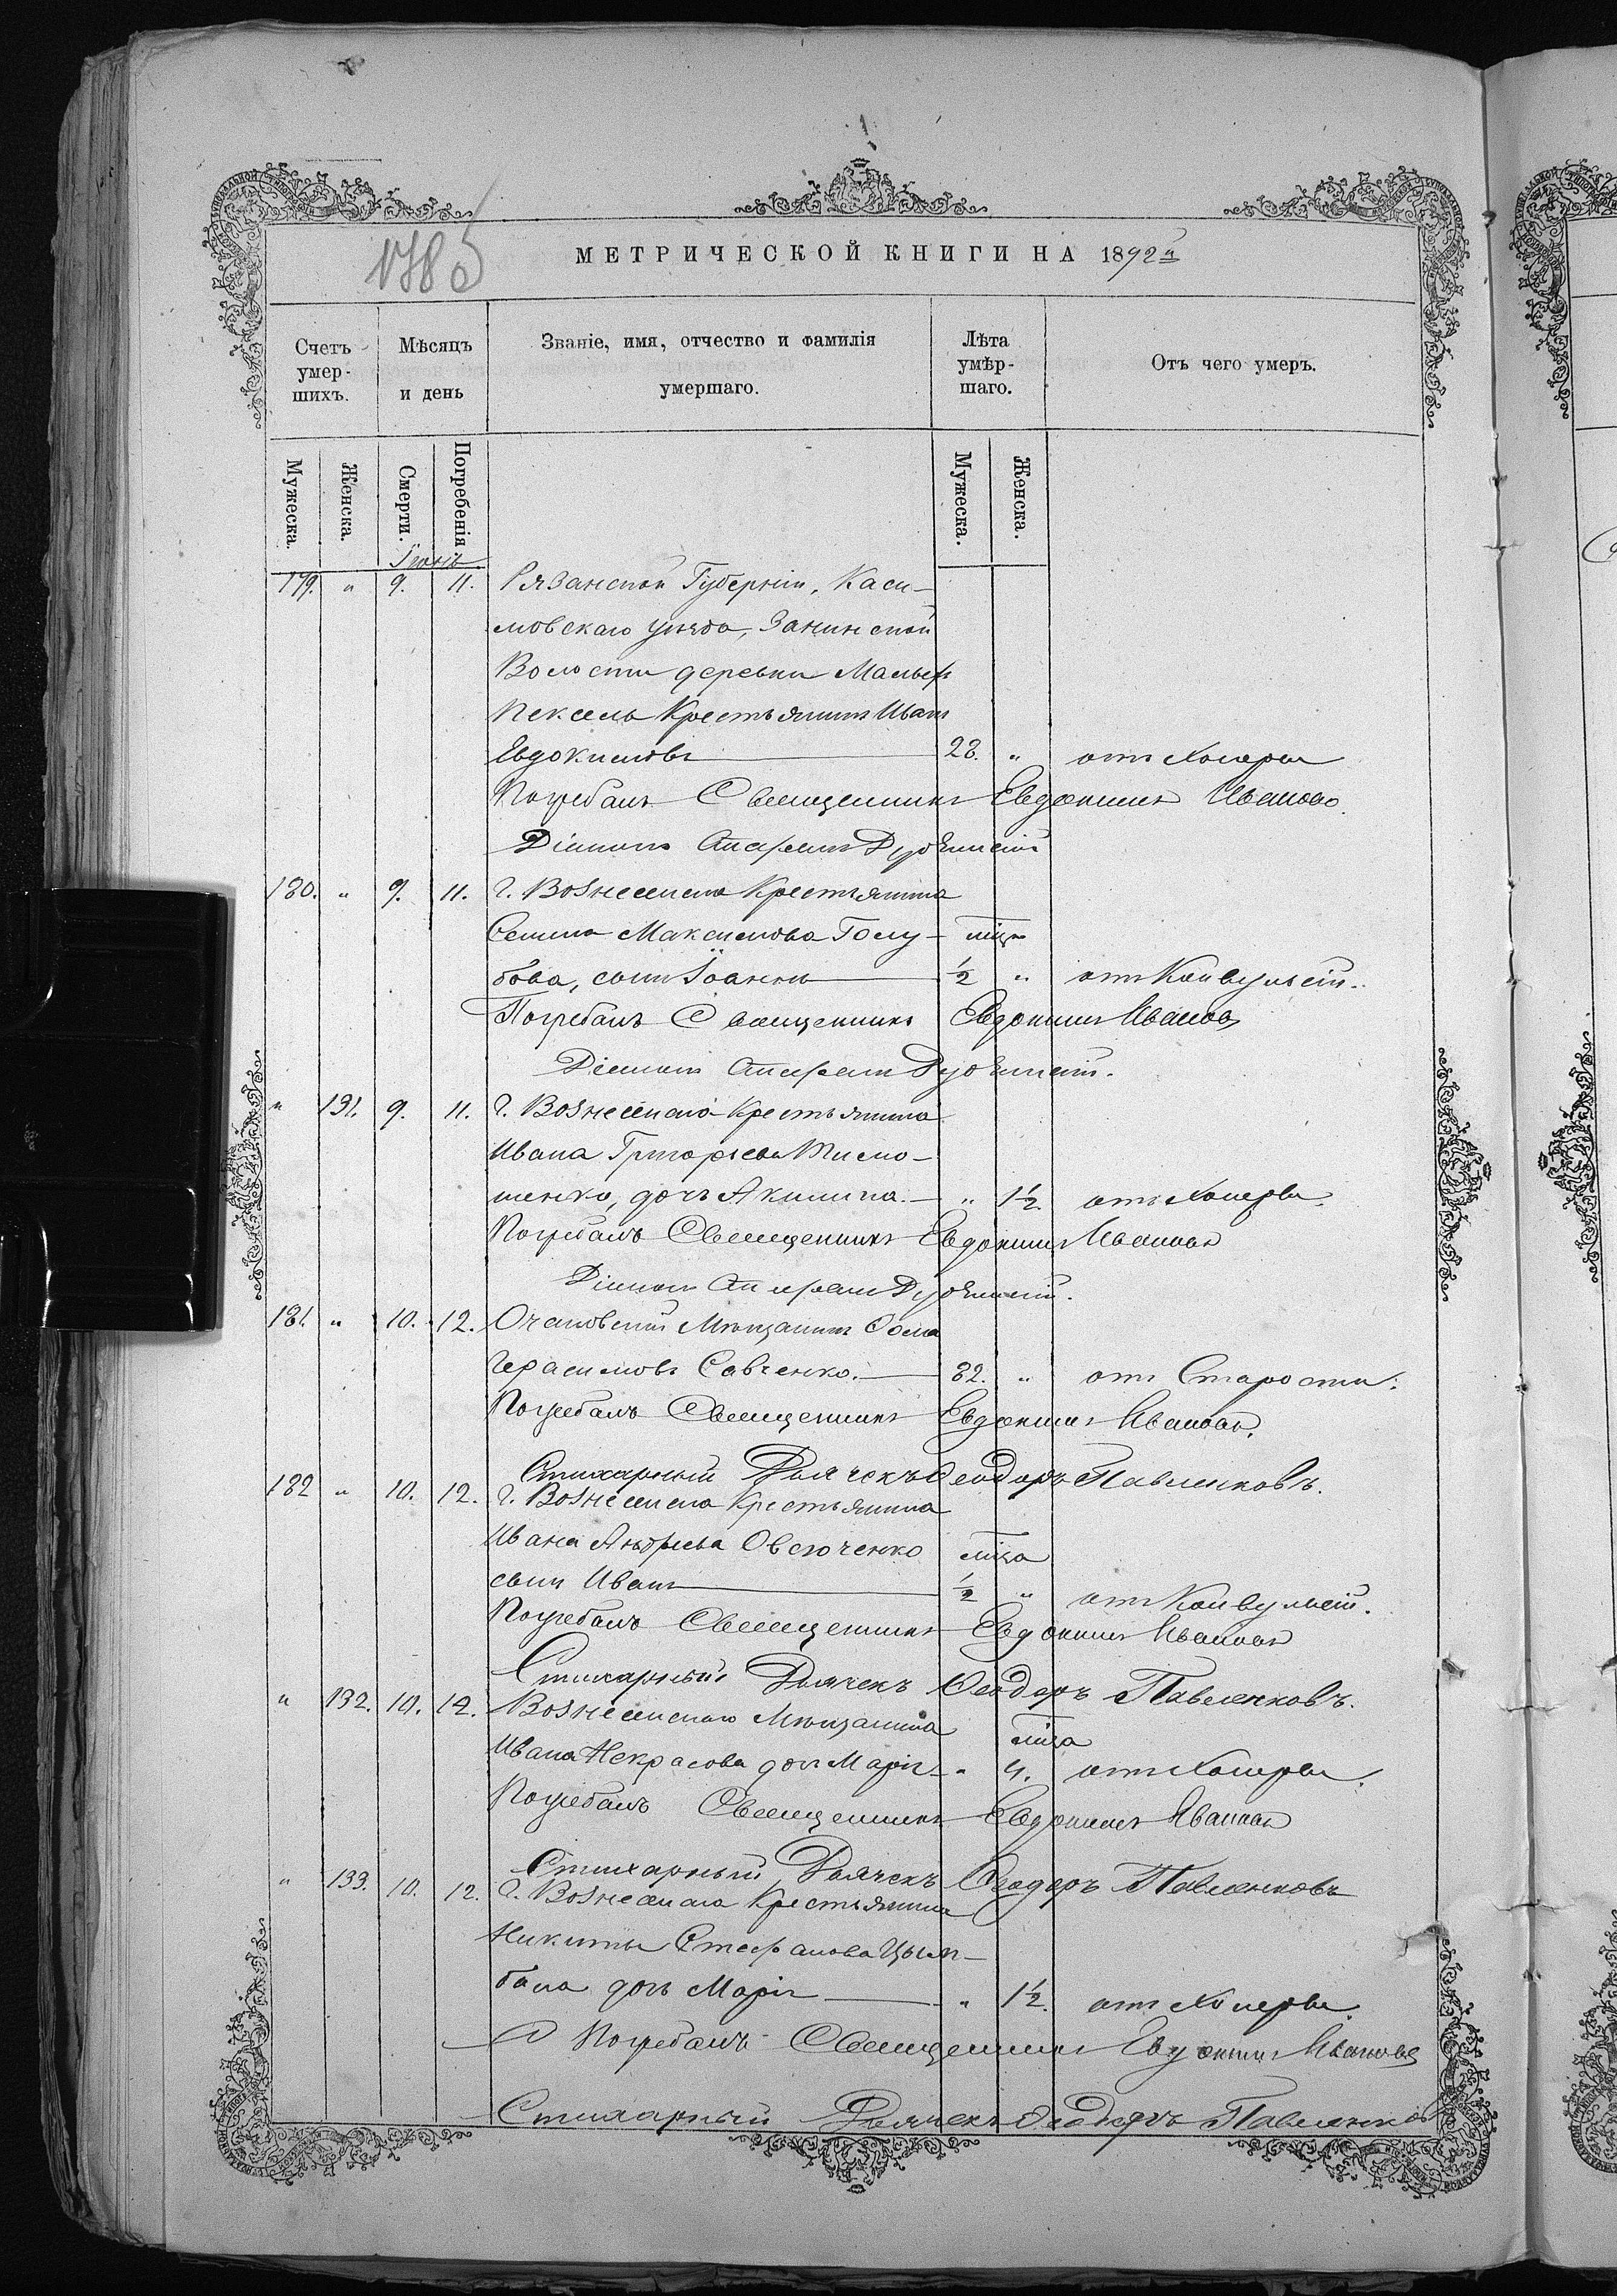 1785
МЕТРИЧЕСКОЙ КНИГИ НА 1892 й
Счетъ умер- шихъ.
Мѣсяцъ и день
Званіе, имя, отчество и фамилія умершаго.
Лѣта умѣр- шаго.
Отъ чего умеръ.
Мужеска. Женска. Смерти. Погребенія. Мужеска. Женска.
179. " 9. 11. Рязанской Губерніи, Каси-
мовскаго уѣзда,
Волости деревни
Пексель Крестьянинъ Иванъ
Евдокимовъ 28. " отъ Холеры
Погребалъ Священникъ Евдокимъ Ивановъ
Діаконъ
180. " 9. 11. г. Вознесенска Крестьянина
Семена Максимова Голу- мѣс.
бова, сынъ Іоаннъ ½ " отъ Конвульсій.
Погребалъ Священникъ Евдокимъ Ивановъ
Діаконъ
" 131. 9. 11. г. Вознесенска Крестьянина
Ивана Григорьева Тимо-
шенко, дочь Акилина. " 1½ отъ Холеры.
Погребалъ Священникъ Евдокимъ Ивановъ
Діаконъ
181. " 10. 12. Очаковскій Мѣщанинъ Ѳома
Герасимовъ Савченко. 82. " отъ Старости.
Погребалъ Священникъ Евдокимъ Ивановъ.
Стихарный Дьячекъ Ѳеодоръ Павленковъ.
182 " 10. 12. г. Вознесенска Крестьянина
Ивана Андреева Овсюченко мѣс.
сынъ Иванъ ½ " отъ Конвульсій.
Погребалъ Священникъ Евдокимъ Ивановъ
Стихарный Дьячекъ Ѳеодоръ Павленковъ.
" 132. 10. 12. Вознесенскаго Мѣщанина мѣс.
Ивана Некрасова дочь Марія " 4. отъ Холеры.
Погребалъ Священникъ Евдокимъ Ивановъ
Стихарный Дьячекъ Ѳеодоръ Павленковъ
" 133. 10. 12. г. Вознесенска Крестьянина
Никиты Стефанова Цым-
бала дочь Марія " 1½. отъ Холеры.
Погребалъ Священникъ Евдокимъ Ивановъ
Стихарный Дьячекъ Ѳеодоръ Павленковъ